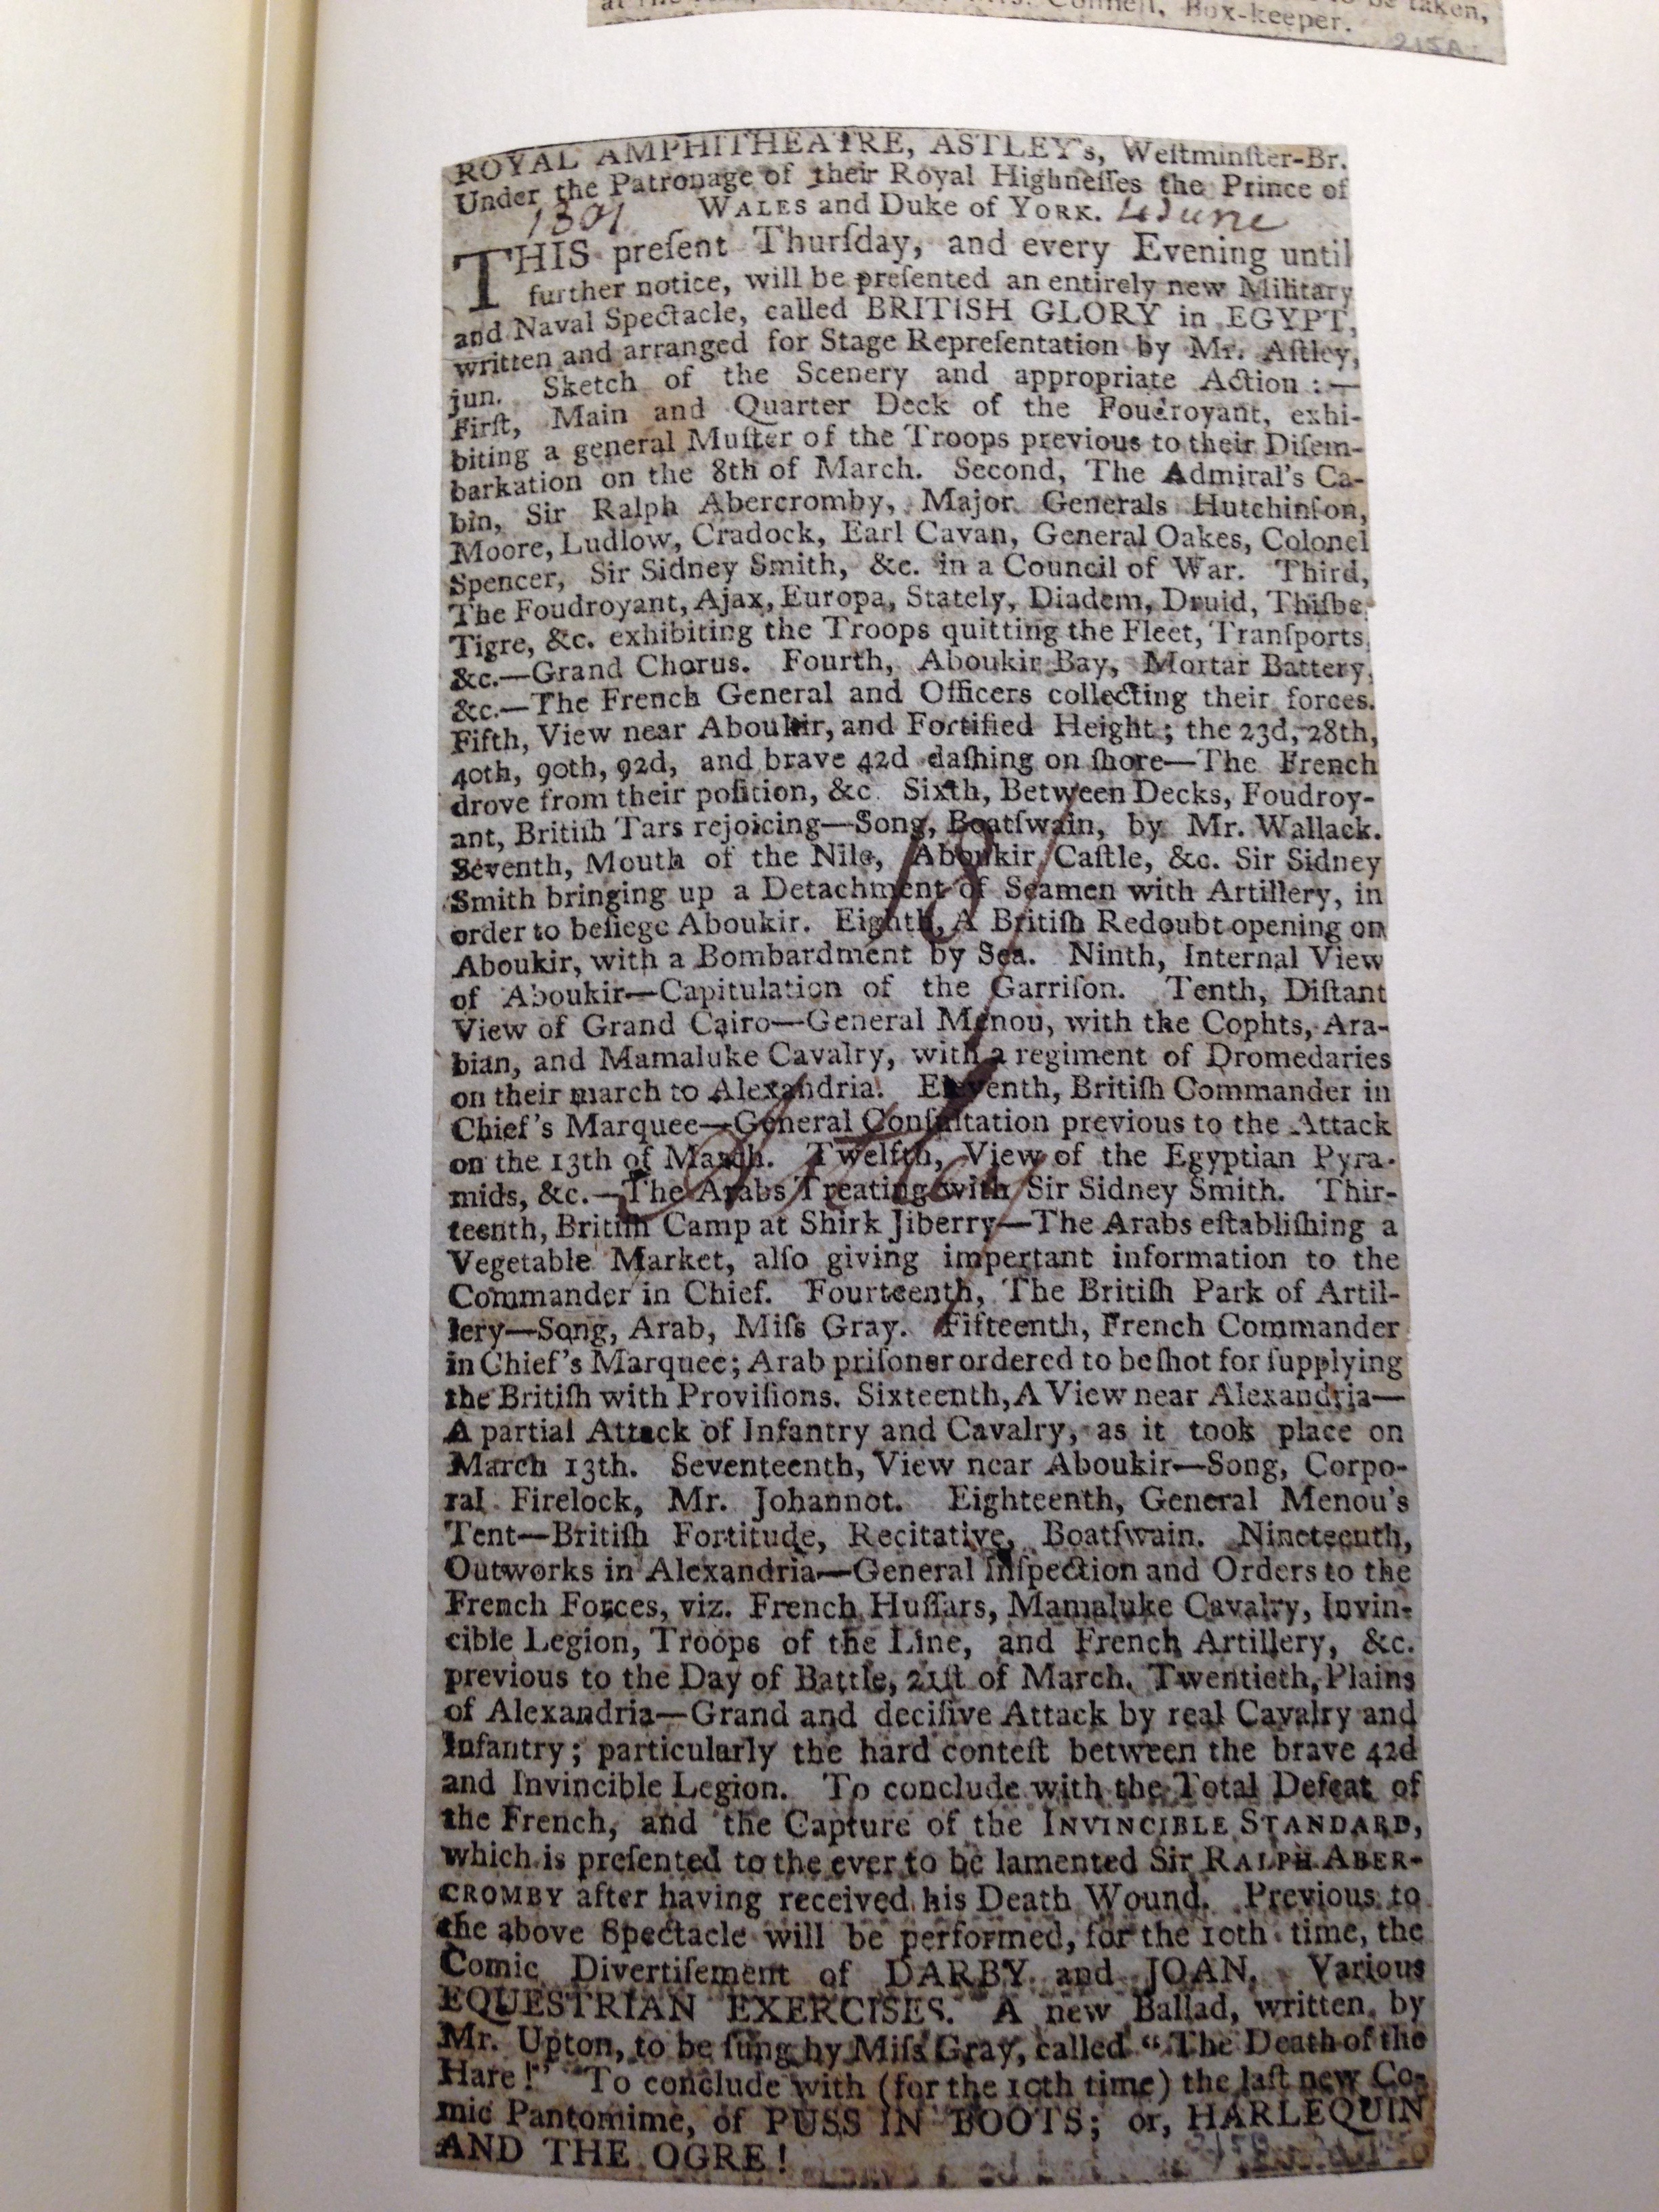 to be taken,
Box-keeper.
215A
ROYAL AMPHITHEATRE, ASTLEY's, Weſtminſter-Br.
Under the Patronage of their Royal Highneſſes the Prince of
WALES and Duke of YORK.
1801 4 June
THIS preſent Thurſday, and every Evening until
further notice, will be preſented an entirely new Military
and Naval Spectacle, called BRITISH GLORY in EGYPT,
written and arranged for Stage Repreſentation by Mr. Aſtley,
jun. Sketch of the Scenery and appropriate Action :—
Firſt, Main and Quarter Deck of the Foudroyant, exhi-
biting a general Muſter of the Troops previous to their Diſem-
barkation on the 8th of March. Second, The Admiral's Ca-
bin, Sir Ralph Abercromby, Major Generals Hutchinſon,
Moore, Ludlow, Cradock, Earl Cavan, General Oakes, Colonel
Spencer, Sir Sidney Smith, &c. in a Council of War. Third,
The Foudroyant, Ajax, Europa, Stately, Diadem, Druid, Thiſbe
Tigre, &c. exhibiting the Troops quitting the Fleet, Tranſports,
&c.—Grand Chorus. Fourth, Aboukir Bay, Mortar Battery,
&c.—The French General and Officers collecting their forces.
Fifth, View near Aboukir, and Fortified Height; the 23d, 28th,
40th, 90th, 92d, and brave 42d daſhing on ſhore—The French
drove from their poſition, &c. Sixth, Between Decks, Foudroy-
ant, Britiſh Tars rejoicing—Song, Boatſwain, by Mr. Wallack.
Seventh, Mouth of the Nile, Aboukir Caſtle, &c. Sir Sidney
Smith bringing up a Detachment of Seamen with Artillery, in
order to beſiege Aboukir. Eighth, A Britiſh Redoubt opening on
Aboukir, with a Bombardment by Sea. Ninth, Internal View
of Aboukir—Capitulation of the Garriſon. Tenth, Diſtant
View of Grand Cairo—General Menou, with the Cophts, Ara-
bian, and Mamaluke Cavalry, with a regiment of Dromedaries
on their march to Alexandria. Eleventh, Britiſh Commander in
Chief's Marquee—General Conſultation previous to the Attack
on the 13th of March. Twelfth, View of the Egyptian Pyra-
mids, &c.—The Arabs Treating with Sir Sidney Smith. Thir-
teenth, Britiſh Camp at Shirk Jiberry—The Arabs eſtabliſhing a
Vegetable Market, alſo giving impertant information to the
Commander in Chief. Fourteenth, The Britiſh Park of Artil-
lery—Song, Arab, Miſs Gray. Fifteenth, French Commander
in Chief's Marquee; Arab priſoner ordered to be ſhot for ſupplying
the Britiſh with Proviſions. Sixteenth, A View near Alexandria—
A partial Attack of Infantry and Cavalry, as it took place on
March 13th. Seventeenth, View near Aboukir—Song, Corpo-
ral Firelock, Mr. Johannot. Eighteenth, General Menou's
Tent—Britiſh Fortitude, Recitative, Boatſwain. Nineteenth,
Outworks in Alexandria—General Inſpection and Orders to the
French Forces, viz. French Huſſars, Mamaluke Cavalry, Invin-
cible Legion, Troops of the Line, and French Artillery, &c.
previous to the Day of Battle, 21ſt of March. Twentieth, Plains
of Alexandria—Grand and deciſive Attack by real Cavalry and
Infantry; particularly the hard conteſt between the brave 42d
and Invincible Legion. To conclude with the Total Defeat of
the French, and the Capture of the INVINCIBLE STANDARD,
which is preſented to the ever to be lamented Sir RALPH ABER-
CROMBY after having received his Death Wound. Previous to
the above Spectacle will be performed, for the 10th time, the
Comic Divertiſement of DARBY and JOAN. Various
EQUESTRIAN EXERCISES. A new Ballad, written by
Mr. Upton, to be ſung by Miſs Gray, called "The Death of the
Hare!" To conclude with (for the 10th time) the laſt new Co-
mic Pantomime, of PUSS IN BOOTS; or, HARLEQUIN
AND THE OGRE!